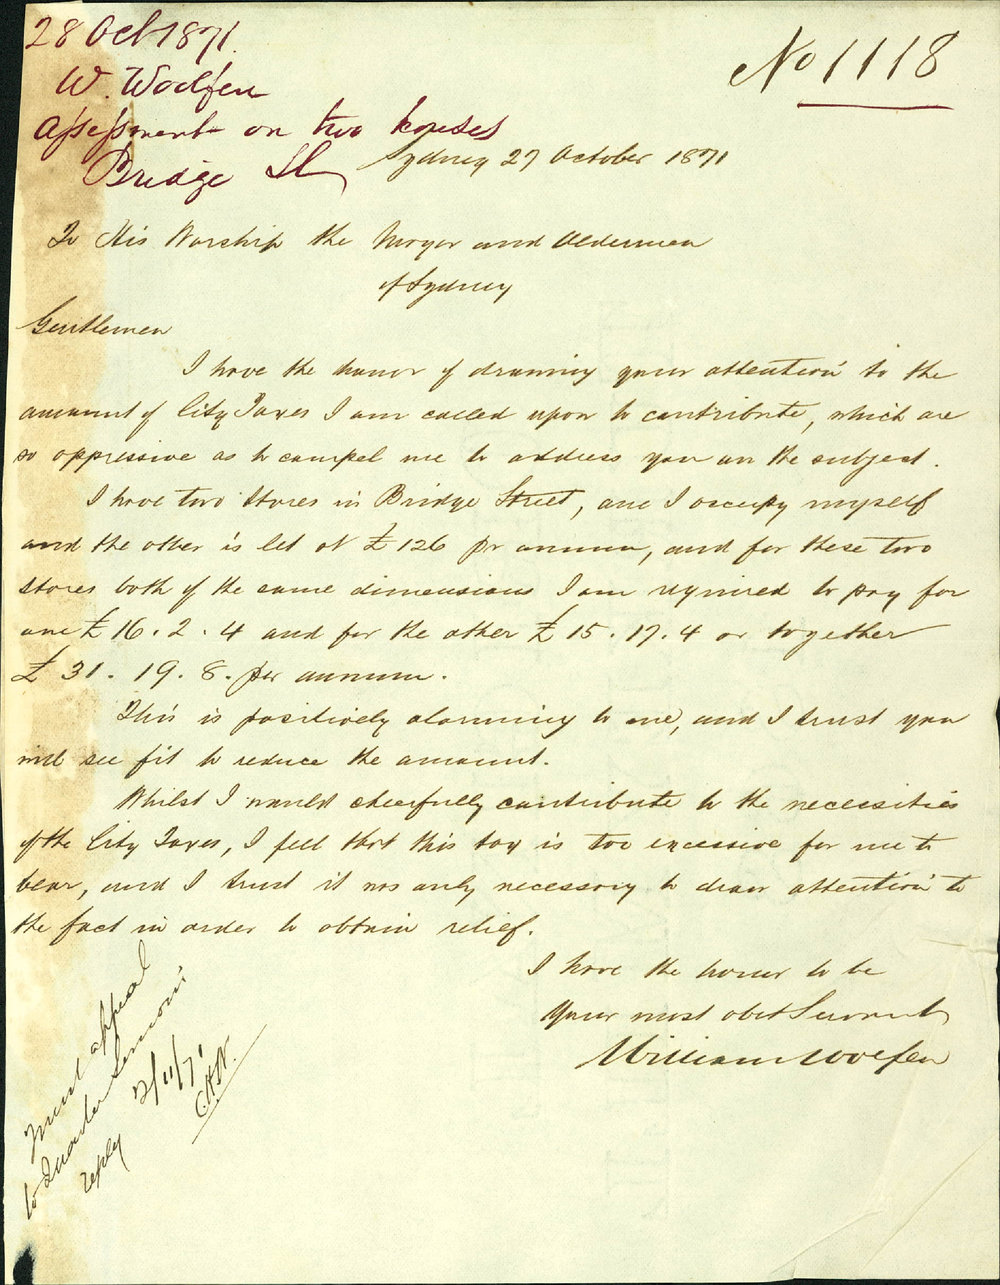 28 Oct 1871.
W. Woolfen
Assessment on two houses
Bridge St
No 1118
Sydney 27 October 1871
To His Worship the Mayor and Aldermen
of Sydney
Gentlemen
I have the honor of drawing your attention to the
amount of City Taxes I am called upon to contribute, which are
so oppressive as to compel me to address you on the subject.
I have two Stores in Bridge Street, one I occupy myself
and the other is let at £126 pr annum, and for these two
stores both of the same dimensions I am required to pay for
one £16.2.4 and for the other £15.17.4 or together
£31.19.8. per annum.
This is positively alarming to me, and I trust you
will see fit to reduce the amount.
Whilst I would cheerfully contribute to the necessities
of the City Taxes, I feel that this tax is too excessive for me to
bear, and I trust it was only necessary to draw attention to
the fact in order to obtain relief.
I have the honor to be
Your most obt Servant
William Wolfen
Must appeal
to Quarter Sessions
reply 2/11/71